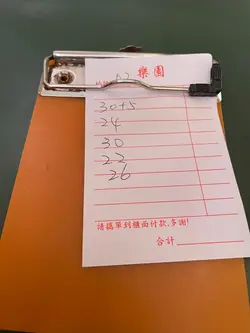 樂園
30+5
24
30
22
26
請攜單到櫃面付款,多謝!
合計